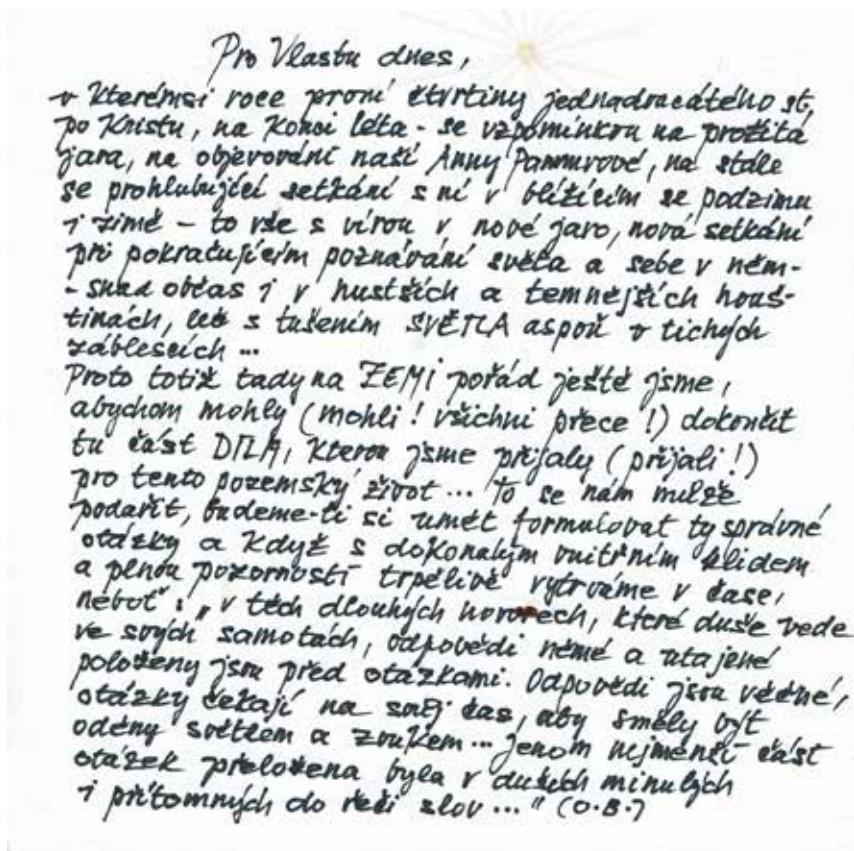 Pro Vlastu dnes,
v kterémsi roce první čtvrtiny jednadvacátého st.
po Kristu, na konci léta - se vzpomínkou na prožitá
jara, na objevování naší Anny Pammrové, na stále
se prohlubující setkání s ní v blížícím se podzimu
i zimě - to vše s vírou v nové jaro, nová setkání
při pokračujícím poznávání světa a sebe v něm -
- snad občas i v hustších a temnějších houš-
tinách, leč s tušením SVĚTLA aspoň v tichých
záblescích ...
Proto totiž tady na ZEMI pořád ještě jsme,
abychom mohly (mohli! všichni přece!) dokončit
tu část DÍLA, kterou jsme přijaly (přijali!)
pro tento pozemský život ... To se nám může
podařit, budeme-li si umět formulovat ty správné
otázky a když s dokonalým vnitřním klidem
a plnou pozorností trpělivě vytrváme v čase,
neboť: „v těch dlouhých hovorech, které duše vede
ve svých samotách, odpovědi němé a utajené
položeny jsou před otázkami. Odpovědi jsou věčné,
otázky čekají na svůj čas, aby směly být
oděny světlem a zvukem ... jenom nejmenší část
otázek přeložena byla v duších minulých
i přítomných do řeči slov ..." (O.B.)